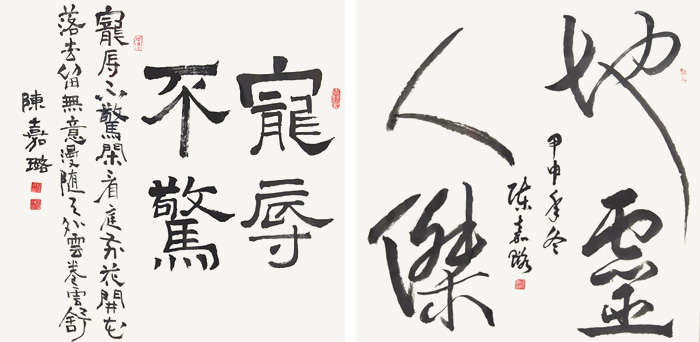 寵辱
不驚
寵辱不驚閑看庭前花開花
落去留無意漫隨天外雲卷雲舒
陳嘉璐
地靈
人傑
甲申年冬
陳嘉璐